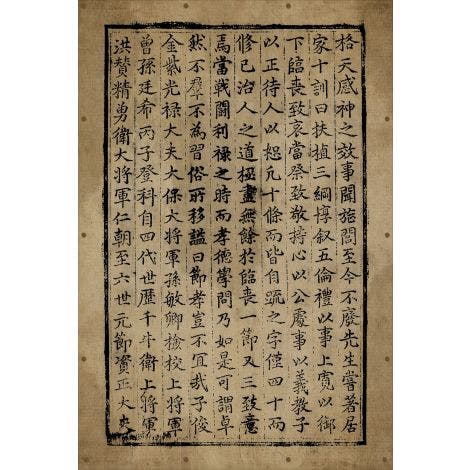 格天感神之效事聞旌閭至今不廢先生嘗著居
家十訓曰扶植三綱惇叙五倫禮以事上寬以御
下臨喪致哀當祭致敬持心以公處事以義教子
以正待人以恕凡十條而皆自䟽之字僅四十而
修已治人之道極盡無餘於臨喪一節又三致意
焉當戰鬪利祿之時而孝德學問乃如是可謂卓
然不羣不為習俗所移謚曰節孝豈不宜哉子俊
金紫光祿大夫太保大將軍孫敏卿檢校上將軍
曾孫廷希丙子登科自四代世歷千牛衛上將軍
洪贊精勇衛大將軍仁朝至六世元節資正大夫